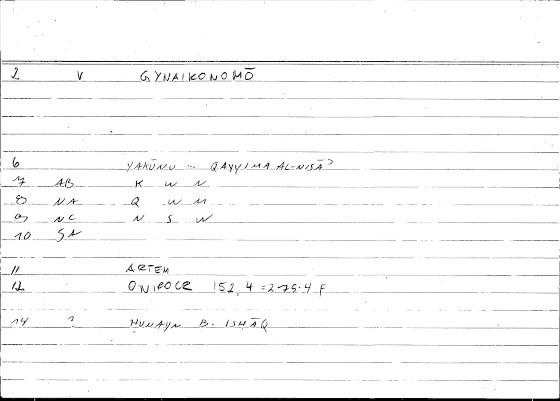 2 V GYNAIKONOMŌ
6 YAKŪNU ... QAYYIMA AL-NISĀʾ
7 AB K W N
8 NA Q W M
9 NC N S W
10 SA
11 ARTEM
12 ONIROCR 152,4 = 275.4 F
14 ? ḤUNAYN B. ISḤĀQ